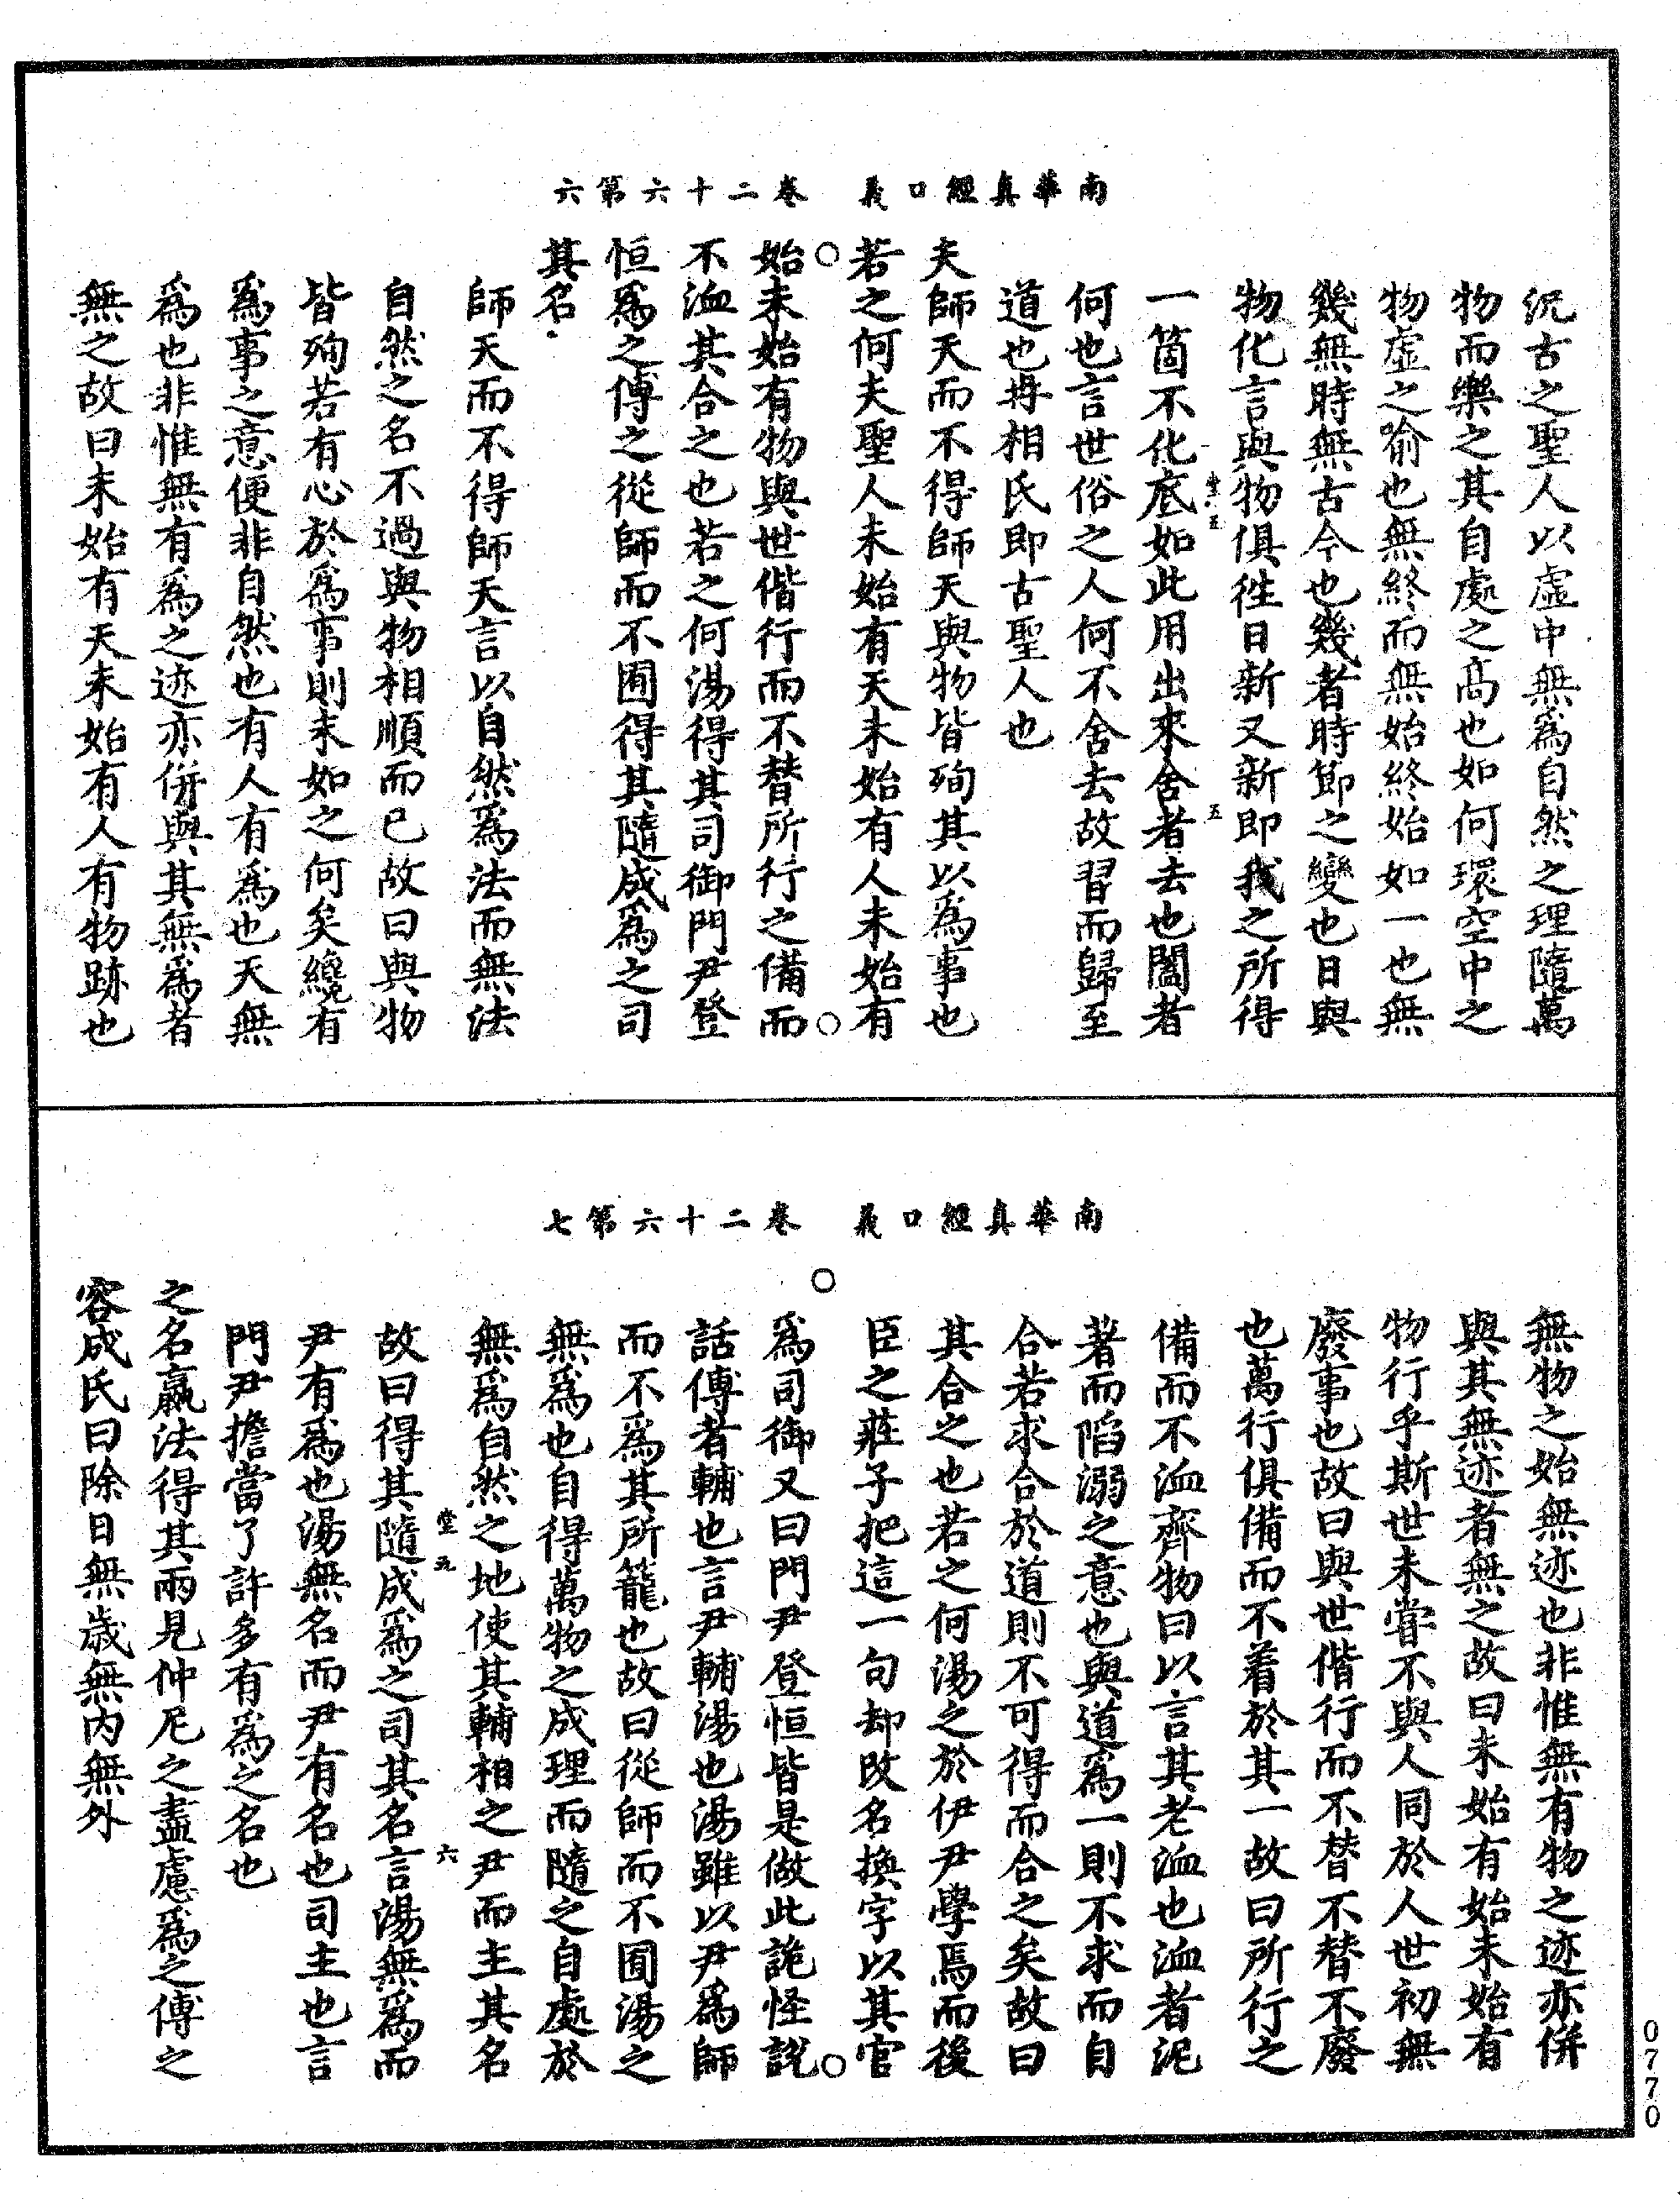 南華真經口義　卷二十六第六
況古之聖人以虛中無爲自然之理隨萬
物而樂之其自處之高也如何環空中之
物虛之喻也無終而無始終始如一也無
幾無時無古今也幾者時節之變也日與
物化言與物俱徃日新又新即我之所得
堂五　五
一箇不化底如此用出來舍者去也闔者
何也言世俗之人何不舍去故習而歸至
道也冉相氏即古聖人也
夫師天而不得師天與物皆殉其以爲事也
若之何夫聖人未始有天未始有人未始有
始未始有物與世偕行而不替所行之備而
不洫其合之也若之何湯得其司御門尹登
恒爲之傅之從師而不囿得其隨成爲之司
其名
師天而不得師天言以自然爲法而無法
自然之名不過與物相順而已故曰與物
皆殉若有心於爲事則未如之何矣纔有
爲事之意便非自然也有人有爲也天無
爲也非惟無有爲之迹亦併與其無爲者
無之故曰未始有天未始有人有物跡也
南華真經口義　卷二十六第七
無物之始無迹也非惟無有物之迹亦併
與其無迹者無之故曰未始有始未始有
物行乎斯世未甞不與人同於人世初無
廢事也故曰與世偕行而不替不替不廢
也萬行俱備而不着於其一故曰所行之
備而不洫齊物曰以言其老洫也洫者泥
著而陷溺之意也與道爲一則不求而自
合若求合於道則不可得而合之矣故曰
其合之也若之何湯之於伊尹學焉而後
臣之莊子把這一句却改名換字以其官
爲司御又曰門尹登恒皆是做此詭怪說
話傅者輔也言尹輔湯也湯雖以尹爲師
而不爲其所籠也故曰從師而不囿湯之
無爲也自得萬物之成理而隨之自處於
無爲自然之地使其輔相之尹而主其名
堂五　六
故曰得其隨成爲之司其名言湯無爲而
尹有爲也湯無名而尹有名也司主也言
門尹擔當了許多有爲之名也
之名嬴法得其兩見仲尼之盡慮爲之傅之
容成氏曰除日無歲無内無外
0770